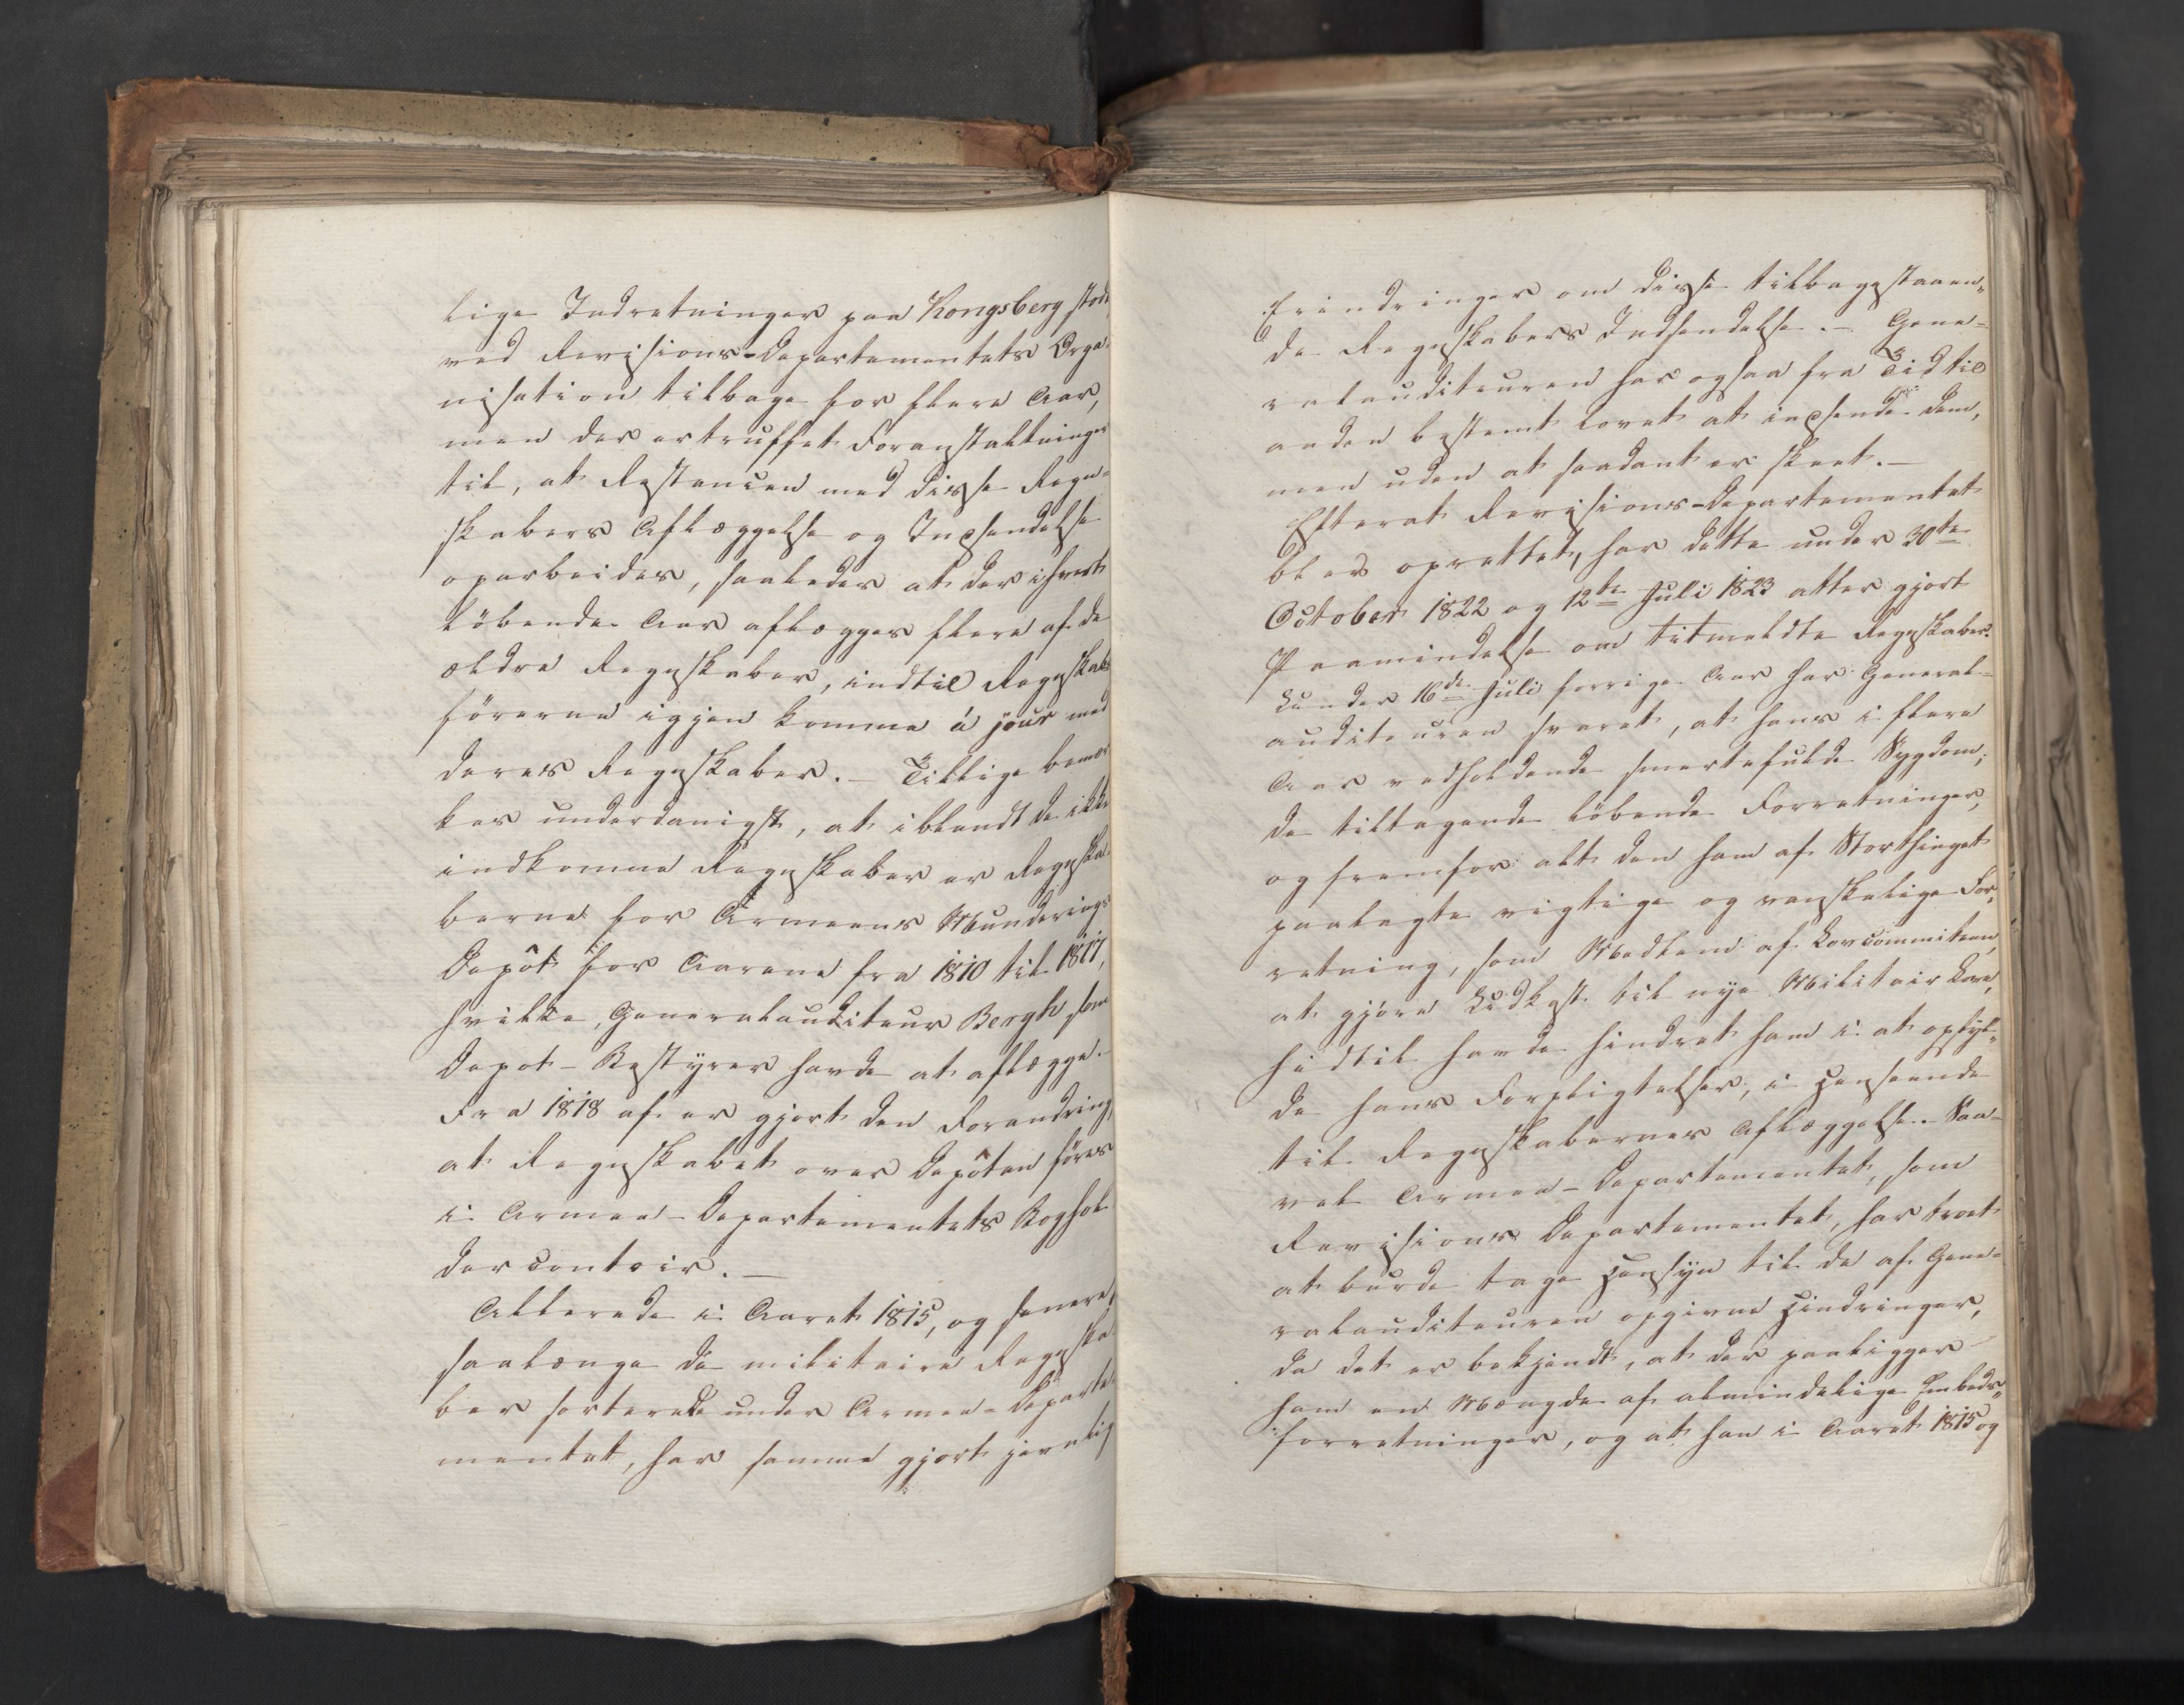 lige Indretninger paa Kongsberg stode
ved Revisions-Departementets Orga-
nisation tilbage for flere Aar,
men der er truffet Foranstaltninger
til, at Restancen med disse Regn-
skabers Aflæggelse og Indsendelse
oparbeides, saaledes at der i hvert
löbende Aar aflægges flere af de
ældre Regnskaber, indtil Regnskabs
förerne igjen komme á jour med
deres Regnskaber. – Tillige bemær
kes underdanigst, at iblandt de ikke
indkomne Regnskaber er Regnska-
berne for Armeens Munderings
Depôt for Aarene fra 1810 til 1817,
hvilke, Generalauditeur Bergh som
Depot-Bestyrer havde at aflægge. –
Fra 1818 af er gjort den Forandring,
at Regnskabet over Depôten föres
i Armee-Departementets Boghol
dercontoir. –
Allerede i Aaret 1815, og senere,
saalænge de militaire Regnska
ber sorterede under Armee-Departe-
mentet, har samme gjort jevnlig
Erindringer om disse tilbagestaaen„
de Regnskabers Indsendelse. – Gene-
ralauditeuren har ogsaa fra Tid til
anden bestemt lovet at indsende dem,
men uden at saadant er skeet. –
Efterat Revisions-Departementet
blev oprettet, har dette under 30te
October 1822 og 12te Juli 1823 atter gjort
Paamindelse om titmeldte Regnskaber.
Under 16de Juli forrige Aar har General-
auditeuren svaret, at hans i flere
Aar vedholdende smertefulde Sygdom,
de tiltagende löbende Forretninger,
og fremfor alt den ham af Storthinget
paalagte vigtige og vanskelige For„
retning, som Medlem af Lovcommiteen,
at gjöre Udkast til nye Militair Love,
hidtil havde hindret ham i at opfyl„
de hans Forpligtelser, i Henseende
til Regnskabernes Aflæggelse. – Saa-
vel Armee-Departementet, som
Revisions Departementet, har troet
at burde tage Hensyn til de af Gene-
ralauditeuren opgivne Hindringer,
da det er bekjendt, at der paaligger
ham en Mængde af almindelige Embeds„
forretninger, og at han i Aaret 1815 og